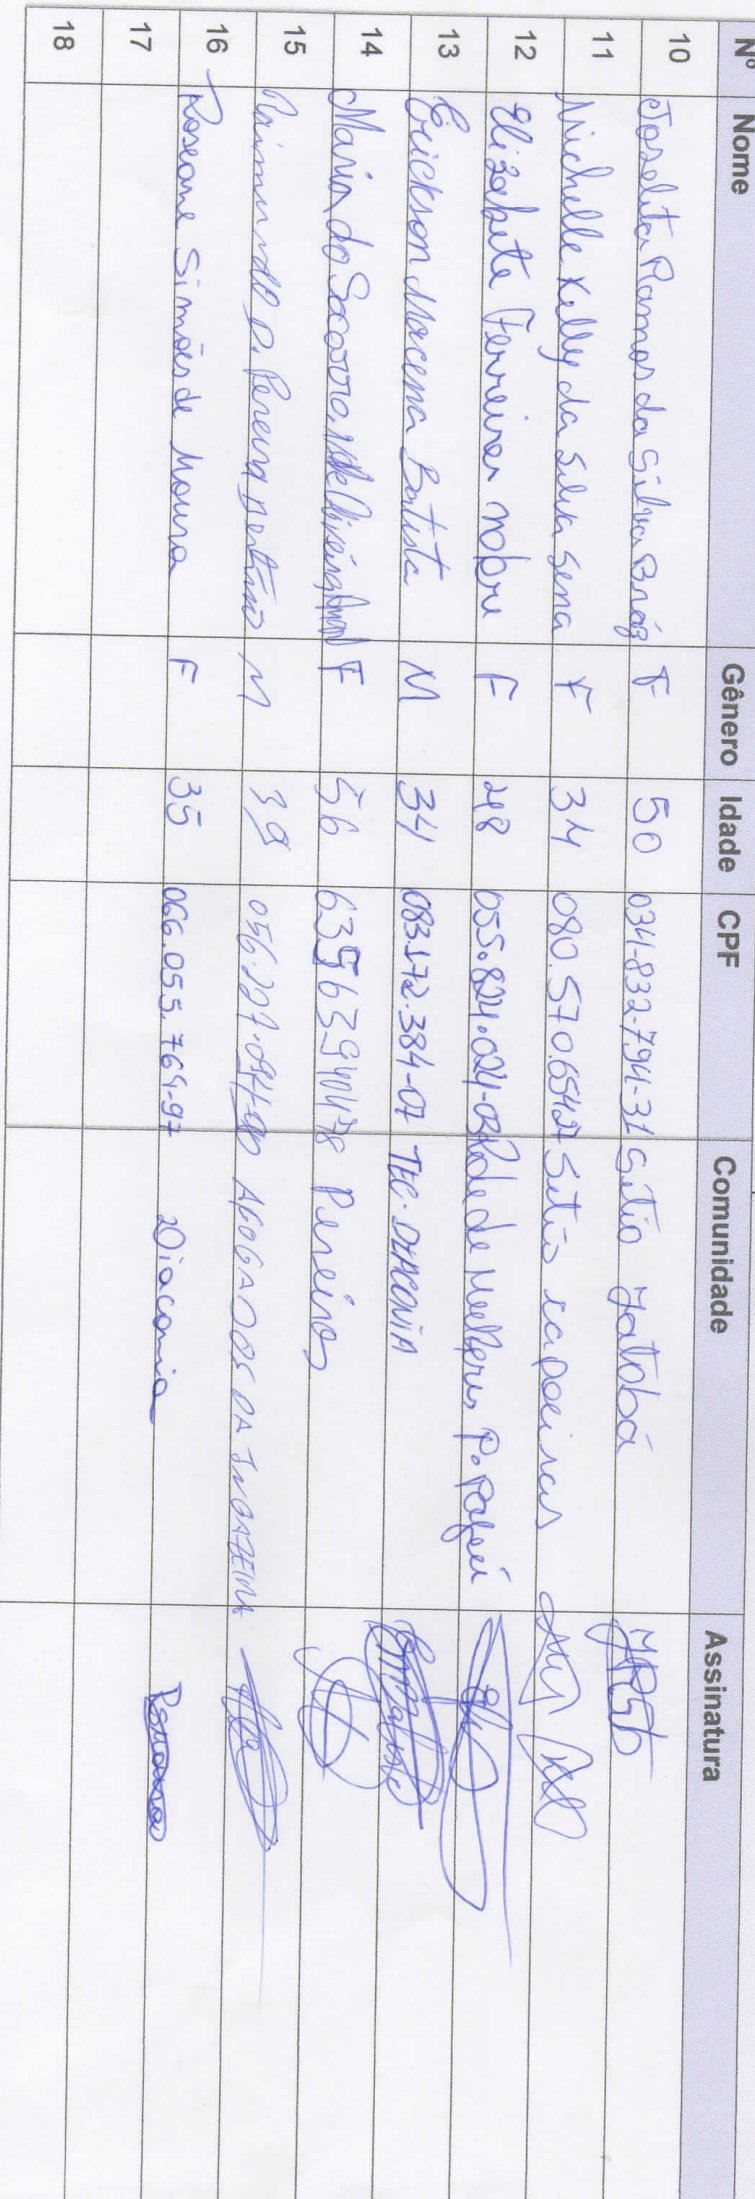 Nº Nome Gênero Idade CPF Comunidade Assinatura
10 Joselita Ramos da Silva Bráz F 50 034-832-794-31 Sítio Jatobá JRSB
11 Michelle Kelly da Silva Sena F 34 080.570.654-27 Sitio capoeiras
12 Elizabete Ferreira nobre F 48 055.824.024-03 Rede de Mulheres P. Pajeú
13 Erickson Macena Batista M 34 083.172.384-07 TEC. DIACONIA
14 Maria do Socorro F 56 63563940478 Pereiros
15 M 39 AFOGADOS DA INGAZEIRA
16 Roseane Simões de Moura F 35 066.055.764-97 Diaconia
17
18